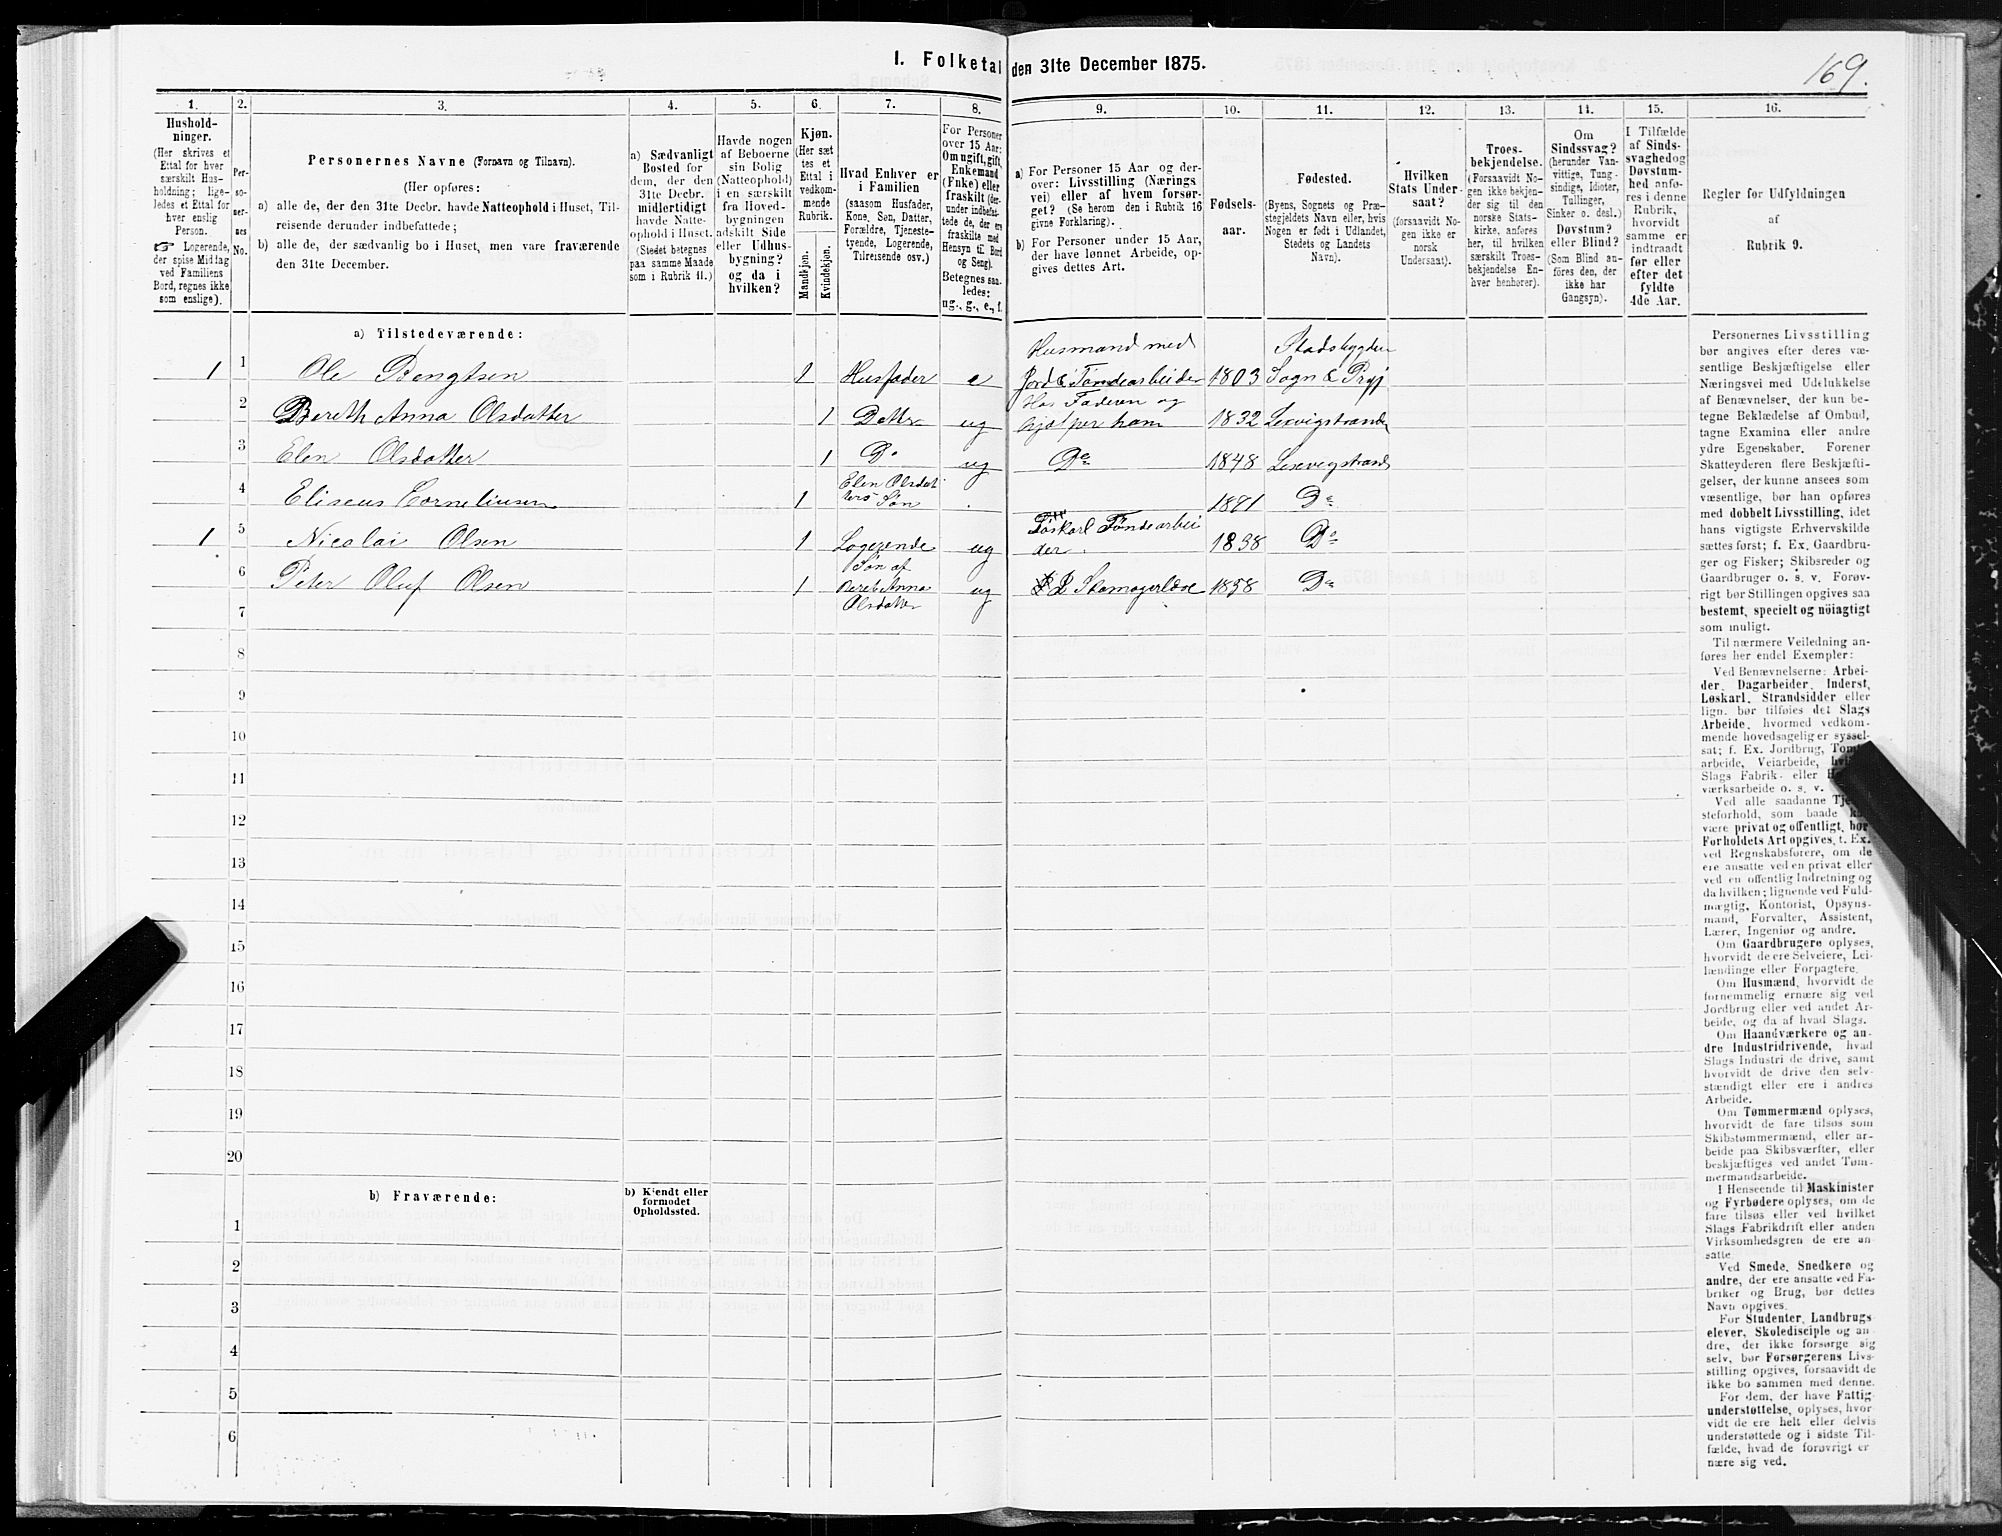 169.
1. Folketal den 31te December 1875.
1. 2. 3. 4. 5. 6. 7. 8. 9. 10. 11. 12. 13. 14. 15. 16.
Hushold-
ninger.
(Her skrives et
Ettal for hver
særskilt Hus-
holdning; lige-
ledes et Ettal for
hver enslig
Person.
☞ Logerende,
der spise Middag
ved Familiens
Bord, regnes ikke
som enslige).
Per-
so-
ner-
nes
No.
Personernes Navne (Fornavn og Tilnavn).
(Her opføres:
a) alle de, der den 31te Decbr. havde Natteophold i Huset, Til-
reisende derunder indbefattede;
b) alle de, der sædvanlig bo i Huset, men vare fraværende
den 31te December.
a) Sædvanligt
Bosted for
dem, der den
31te Decbr.
midlertidigt
havde Natte-
ophold i Huset.
(Stedet betegnes
paa samme Maade
som i Rubrik 11.)
Havde nogen
af Beboerne
sin Bolig
(Natteophold)
i en særskilt
fra Hoved-
bygningen
adskilt Side
eller Udhus-
bygning?
og da i
hvilken?
Kjøn.
(Her sæt
tes et
Ettal i
vedkom-
mende
Rubrik.
Mandkjøn.
Kvindekjøn.
Hvad Enhver er
i Familien
(saasom Husfader,
Kone, Søn, Datter,
Forældre, Tjeneste-
tyende, Logerende,
Tilreisende osv.)
For Personer
over 15 Aar:
Om ugift, gift,
Enkemand
(Enke) eller
fraskilt (der-
under indbefat-
tede de, der ere
fraskilte med
Hensyn til Bord
og Seng).
Betegnes saa-
ledes:
ug., g., e., f.
a) For Personer 15 Aar og der-
over: Livsstilling (Nærings
vei) eller af hvem forsør-
get? (Se herom den i Rubrik 16
givne Forklaring).
b) For Personer under 15 Aar,
der have lønnet Arbeide, op-
gives dettes Art.
Fødsels-
aar.
Fødested.
(Byens, Sognets og Præ-
stegjeldets Navn eller, hvis
Nogen er født i Udlandet,
Stedets og Landets
Navn).
Hvilken
Stats Under-
saat?
(forsaavidt No-
gen ikke er
norsk
Undersaat).
Troes-
bekjendelse.
(Forsaavidt No-
gen ikke bekjen-
der sig til den
norske Stats-
kirke, anføres
her, til hvilken
særskilt Troes-
bekjendelse En-
hver henhører).
Om
Sindssvag?
(herunder Van-
vittige, Tung-
sindige, Idioter,
Tullinger,
Sinker o. desl.)
Døvstum?
eller Blind?
(Som Blind an-
føres den, der
ikke har
Gangsyn).
I Tilfælde
af Sinds-
svaghed og
Døvstum-
hed anfø-
res i denne
Rubrik,
hvorvidt
samme er
indtraadt
før eller
efter det
fyldte
4de Aar.
Regler for Udfyldningen
af
Rubrik 9.
a) Tilstedeværende:
Husmand med Stadsbygden
1 1 Ole Bengtsen 1 Husfader e Jord & Tøndearbeider 1803 Sogn & Prgj
Hos Faderen og
2 Bereth Anna Olsdatter 1 Datter ug hjelper ham 1832 Lexvigstranden
3 Elen Olsdatter 1 Do ug Do 1848 Lexvigstrand
Elen Olsdat
4 Eliseus Corneliusen 1 ters Søn 1871 Do
Løskarl Tøndearbei
1 5 Nicolai Olsen 1 Logerende ug der. 1838 Do
Søn af
6 Peter Oluf Olsen 1 Bereth Anna ug 1858 Do
Olsdatter
7
8
9
10
11
12
13
14
15
16
17
18
19
20
b) Fraværende:
b) Kjendt eller
formodet
Opholdssted.
1
2
3
4
5
6
Personernes Livsstilling
bør angives efter deres væ-
sentlige Beskjæftigelse eller
Næringsvei med Udelukkelse
af Benævnelser, der kun be-
tegne Beklædelse af Ombud,
tagne Examina eller andre
ydre Egenskaber. Forener
Skatteyderen flere Beskjæfti-
gelser, der kunne ansees som
væsentlige, bør han opføres
med dobbelt Livsstilling, idet
hans vigtigste Erhvervskilde
sættes først; f. Ex. Gaardbru-
ger og Fisker; Skibsreder og
Gaardbruger o. s. v. Forøv-
rigt bør Stillingen opgives saa
bestemt, specielt og nöiagtigt
som muligt.
Til nærmere Veiledning an-
føres her endel Exempler:
Ved Benævnelserne: Arbei-
der, Dagarbeider, Inderst,
Løskarl, Strandsidder eller
lign. bør tilføies det Slags
Arbeide, hvormed vedkom-
mende hovedsagelig er syssel-
sat; f. Ex. Jordbrug, Tomt-
arbeide, Veiarbeide,
Slags Fabrik- eller
værksarbeide o. s. v.
Ved alle saadanne Tje-
steforhold, som baade
være privat og offentligt, bør
Forholdets Art opgives, f. Ex.
ved Regnskabsførere, om de
ere ansatte ved en privat eller
ved en offentlig Indretning og
da hvilken; lignende ved Fuld-
mægtig, Kontorist, Opsyns-
mand, Forvalter, Assistent,
Lærer, Ingeniør og andre.
Om Gaardbrugere oplyses,
hvorvidt de ere Selveiere, Lei-
lændinge eller Forpagtere.
Om Husmænd, hvorvidt de
fornemmelig ernære sig ved
Jordbrug eller ved andet Ar-
beide, og da af hvad Slags.
Om Haandværkere og an-
dre Industridrivende, hvad
Slags Industri de drive, samt
hvorvidt de drive den selv-
stændigt eller ere i andres
Arbeide.
Om Tømmermænd oplyses,
hvorvidt de fare tilsøs som
Skibstømmermænd, eller ar-
beide paa Skibsværfter, eller
beskjæftiges ved andet Tøm-
mermandsarbeide.
I Henseende til Maskinister
og Fyrbødere oplyses, om de
fare tilsøs eller ved hvilket
Slags Fabrikdrift eller anden
Virksomhedsgren de ere an-
satte.
Ved Smede, Snedkere og
andre, der ere ansatte ved Fa-
briker og Brug, bør dettes
Navn opgives.
For Studenter, Landbrugs-
elever, Skoledisciple og an-
dre, der ikke forsørge sig
selv, bør Forsørgerens Livs-
stilling opgives, forsaavidt de
ikke bo sammen med denne.
For dem, der have Fattig-
understøttelse, oplyses, hvor-
vidt de ere helt eller delvis
understøttede og i sidste Til-
fælde, hvad de forøvrigt er-
nære sig ved.